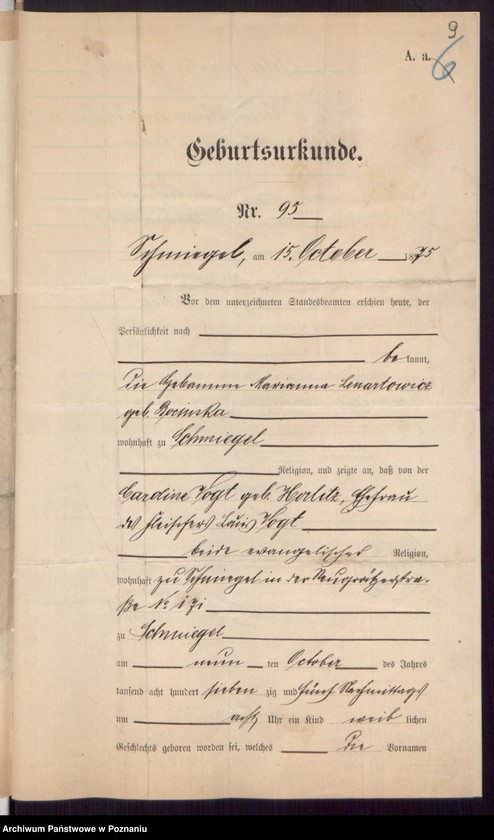 9
A. a.
6
Geburtsurkunde.
Nr. 95
Schmiegel, am 15. October 1875
Vor dem unterzeichneten Standesbeamten erschien heute, der
Persönlichkeit nach
be kannt,
die Hebamme Marianna Lenartowicz
geb.
wohnhaft zu Schmiegel
Religion, und zeigte an, daß von der
Caroline Vogt geb. Horlitz, Ehefrau
des Fleischers Louis Vogt
beide evangelischer Religion,
wohnhaft zu Schmiegel in der Neugrätzerstra-
ße No 171
zu Schmiegel
am neun ten October des Jahres
tausend acht hundert sieben zig und fünf Nachmittags
um acht Uhr ein Kind weib lichen
Geschlechts geboren worden sei, welches die Vornamen
Archiwum Państwowe w Poznaniu